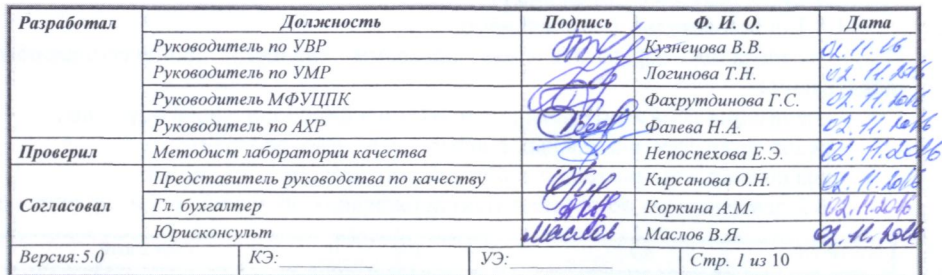 Разработал Должность Подпись Ф. И. О. Дата
Руководитель по УВР Кузнецова В.В. 02.11.16
Руководитель по УМР Логинова Т.Н. 02.11.2016
Руководитель МФУЦПК Фахрутдинова Г.С. 02.11.2016
Руководитель по АХР Фалева Н.А. 02.11.2016
Проверил Методист лаборатории качества Непоспехова Е.Э. 02.11.2016
Представитель руководства по качеству Кирсанова О.Н. 02.11.2016
Согласовал Гл. бухгалтер Коркина А.М. 02.11.2016
Юрисконсульт Маслов Маслов В.Я. 02.11.2016
Версия:5.0 КЭ:__________ УЭ:__________ Стр. 1 из 10